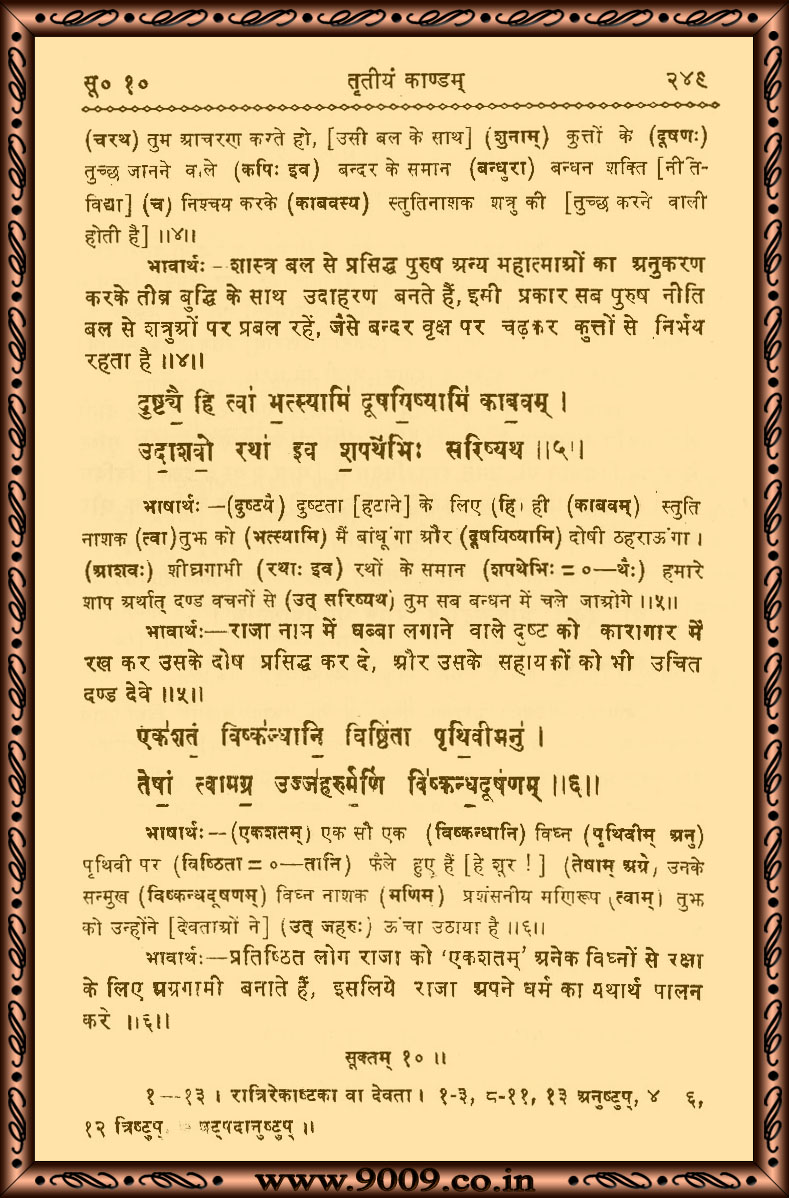 सू० १० तृतीयं काण्डम् २४९
(चरथ) तुम आचरण करते हो, [उसी बल के साथ] (शुनाम्) कुत्तों के (दूषणः)
तुच्छ जानने वाले (कपिः इव) बन्दर के समान (बन्धुरा) बन्धन शक्ति [नीति-
विद्या] (च) निश्चय करके (काबवस्य) स्तुतिनाशक शत्रु की [तुच्छ करने वाली
होती है] ॥४॥
भावार्थः - शास्त्र बल से प्रसिद्ध पुरुष अन्य महात्माओं का अनुकरण
करके तीव्र बुद्धि के साथ उदाहरण बनते हैं, इमी प्रकार सब पुरुष नीति
बल से शत्रुओं पर प्रबल रहें, जैसे बन्दर वृक्ष पर चढ़कर कुत्तों से निर्भय
रहता है ॥४॥
दुष्ट्यै हि त्वा॑ भ॒त्स्यामि॑ दूषयि॒ष्यामि॑ काब॒वम् ।
उदा॒शवो॒ रथा॑ इव श॒पथे॑भिः सरिष्यथ ॥५॥
भाषार्थः —(दुष्टयै) दुष्टता [हटाने] के लिए (हि) ही (काबवम्) स्तुति
नाशक (त्वा) तुझ को (भत्स्यामि) मैं बांधूंगा और (दूषयिष्यामि) दोषी ठहराऊंगा ।
(आशवः) शीघ्रगाभी (रथाः इव) रथों के समान (शपथेभिः = ०—थैः) हमारे
शाप अर्थात् दण्ड वचनों से (उत् सरिष्यथ) तुम सब बन्धन में चले जाओगे ॥५॥
भावार्थः—राजा नाम में धब्बा लगाने वाले दुष्ट को कारागार में
रख कर उसके दोष प्रसिद्ध कर दे, और उसके सहायकों को भी उचित
दण्ड देवे ॥५॥
एक॑शतं॒ विष्क॑न्धानि॒ विष्ठि॑ता पृथि॒वीमनु॑ ।
तेषां॒ त्वामग्र॒ उज्ज॑हरुर्म॒णिं वि॑ष्कन्ध॒दूष॑णम् ॥६॥
भाषार्थः—(एकशतम्) एक सौ एक (विष्कन्धानि) विघ्न (पृथिवीम् अनु)
पृथिवी पर (विष्ठिता = ०—तानि) फैले हुए हैं [हे शूर !] (तेषाम् अग्रे) उनके
सन्मुख (विष्कन्धदूषणम्) विघ्न नाशक (मणिम्) प्रशंसनीय मणिरूप (त्वाम्) तुझ
को उन्होंने [देवताओं ने] (उत् जहरुः) ऊंचा उठाया है ॥६॥
भावार्थः—प्रतिष्ठित लोग राजा को ‘एकशतम्’ अनेक विघ्नों से रक्षा
के लिए अग्रगामी बनाते हैं, इसलिये राजा अपने धर्म का यथार्थ पालन
करे ॥६॥
सूक्तम् १० ॥
१—१३ । रात्रिरेकाष्टका वा देवता । १-३, ८-११, १३ अनुष्टुप्, ४ ६,
१२ त्रिष्टुप्, षट्पदानुष्टुप् ॥
www.9009.co.in